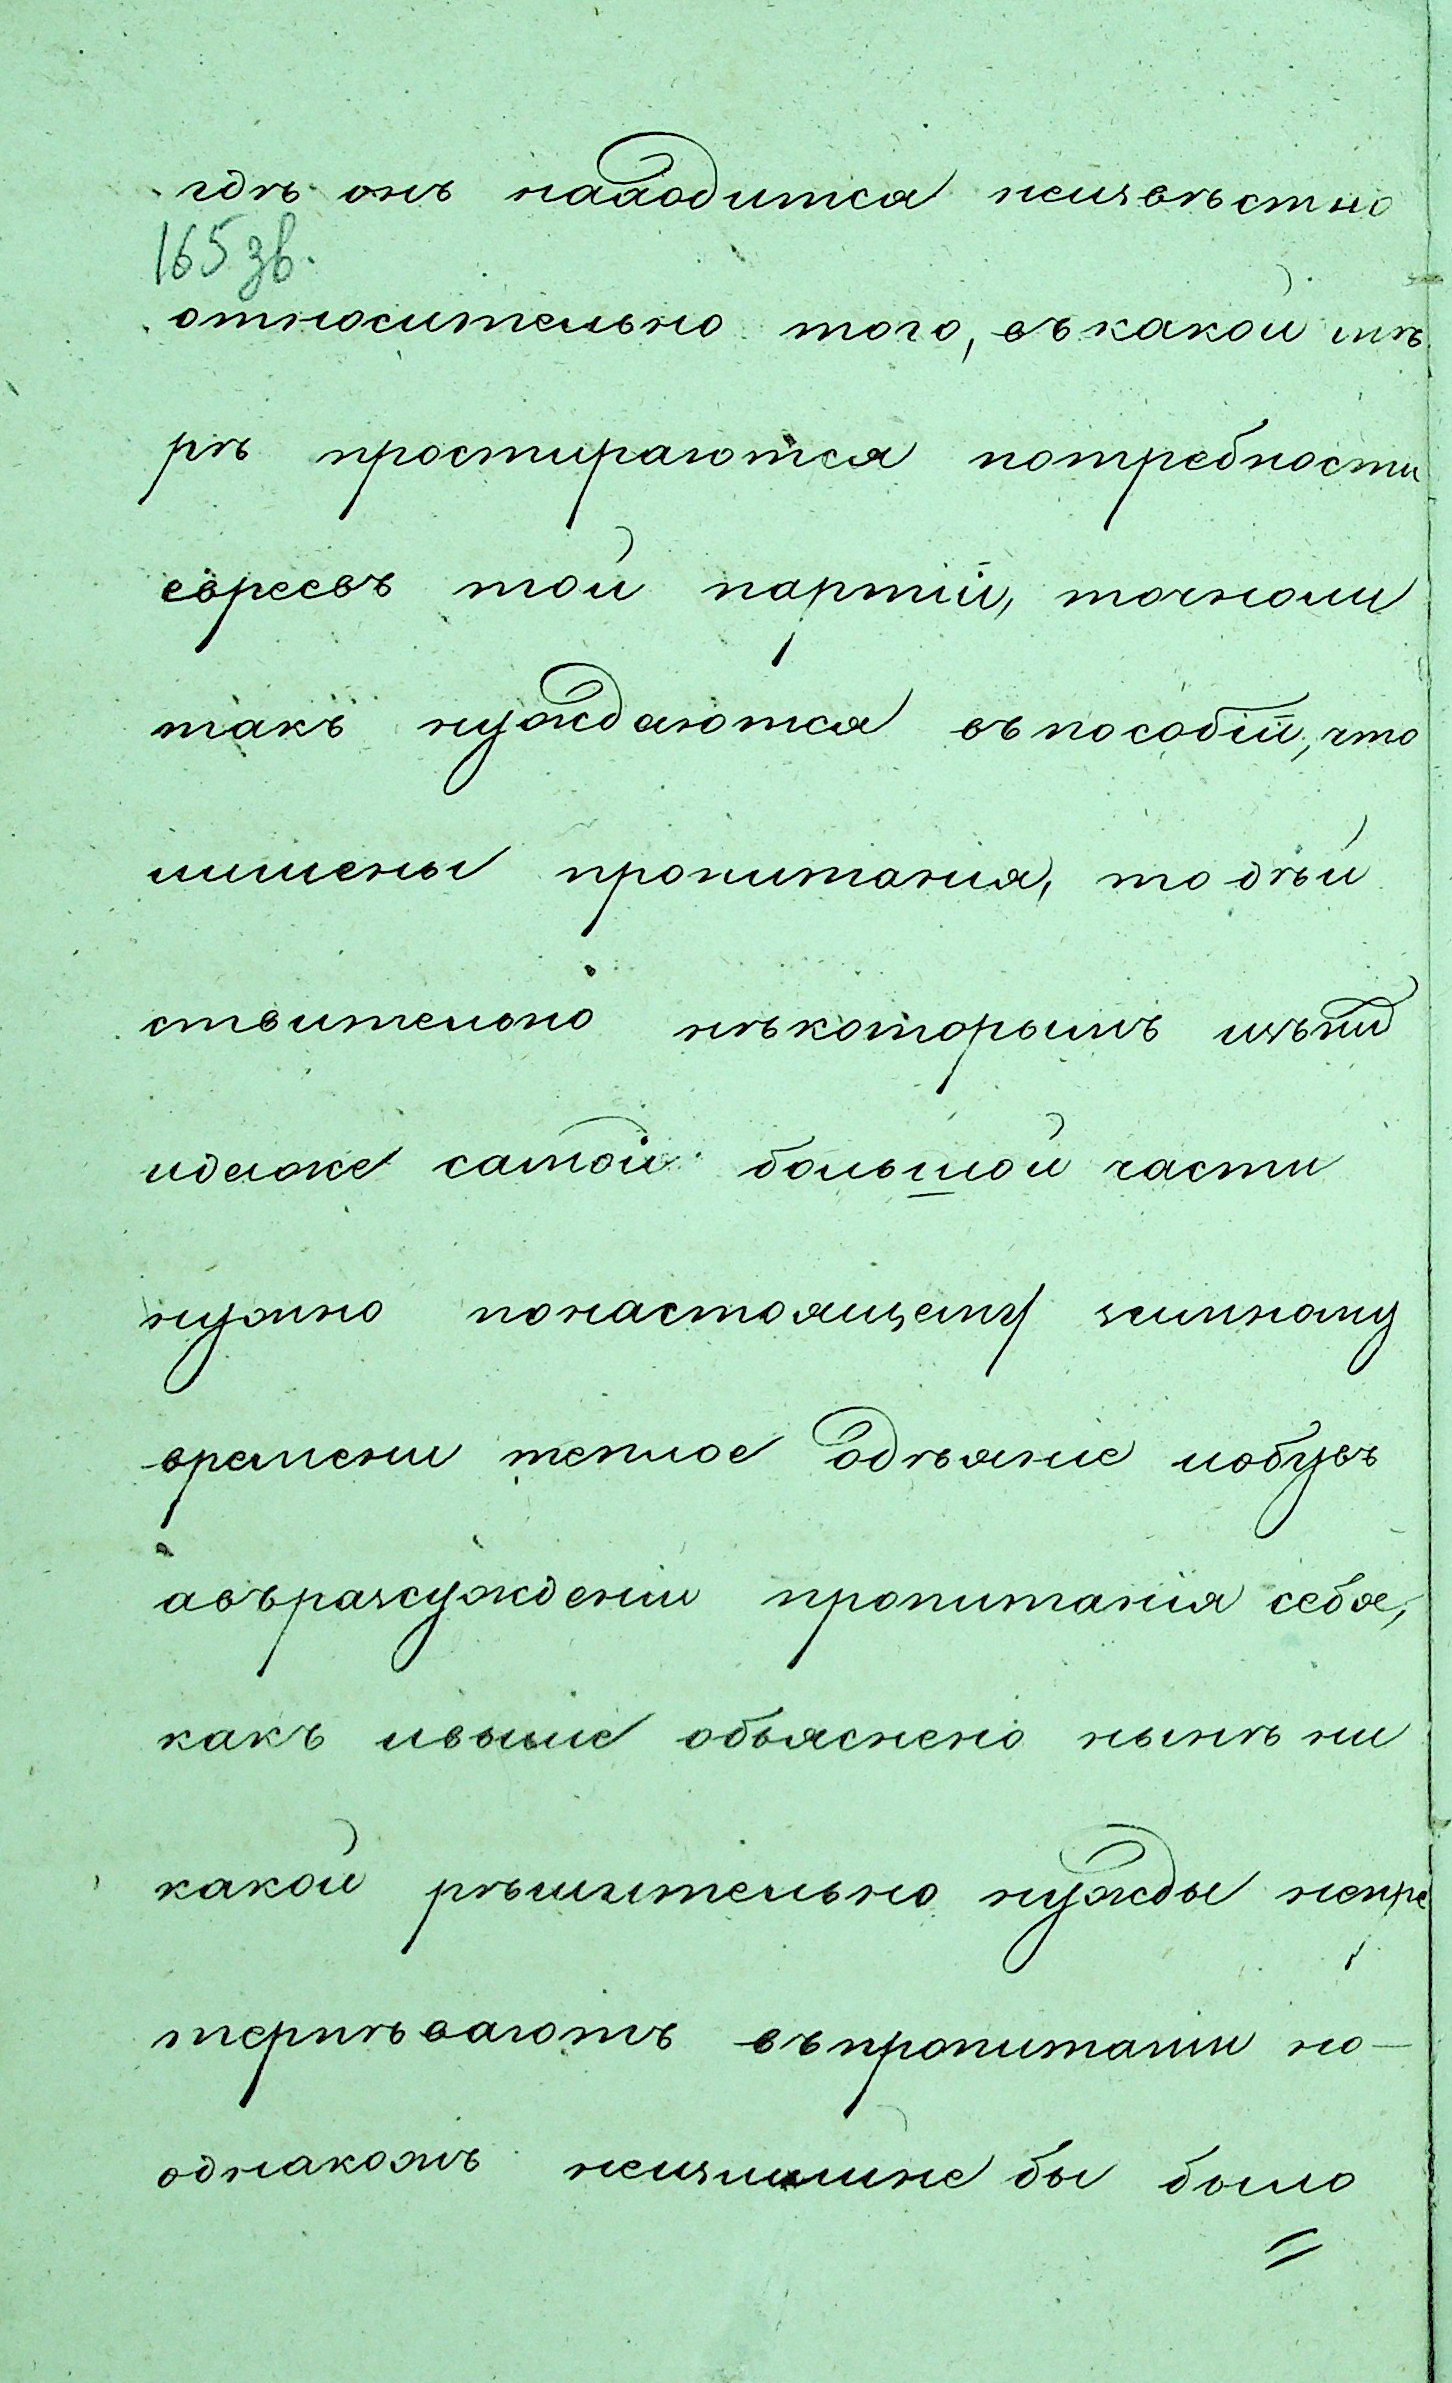 гдѣ онъ находится неизвѣстно
165 зв.
относительно того, въ какой мѣ
рѣ простираются потребности
евреевъ той партіи, точноли
такъ нуждаются въ пособіи, что
лишены пропитанія, то дѣй
ствительно нѣкоторымъ изъ нихъ
идаже самой большой части
нужно понастоящему зимному
времени теплое одѣяніе иобувь
авъразсужденіи пропитанія себя,
какъ ивыше объяснено нынѣ ни
какой рѣшительно нужды непре
терпѣваютъ въпропитаніи но—
однакожъ неизлишне бы было
=